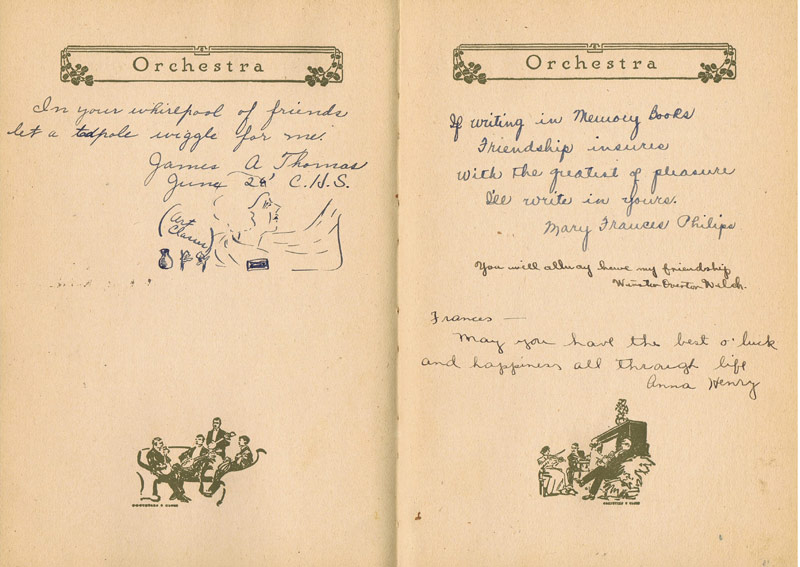 Orchestra
In your whirlpool of friends
let a tadpole wiggle for me.
James A Thomas
June 26' C.H.S.
(Art
Class)
Orchestra
If writing in Memory Books
Friendship insures
With the greatist of pleasure
I'll write in yours.
Mary Frances Philips
You will allway have my friendship
Winston Overton Welch.
Frances —
May you have the best o' luck
and happiness all through life
Anna Henry